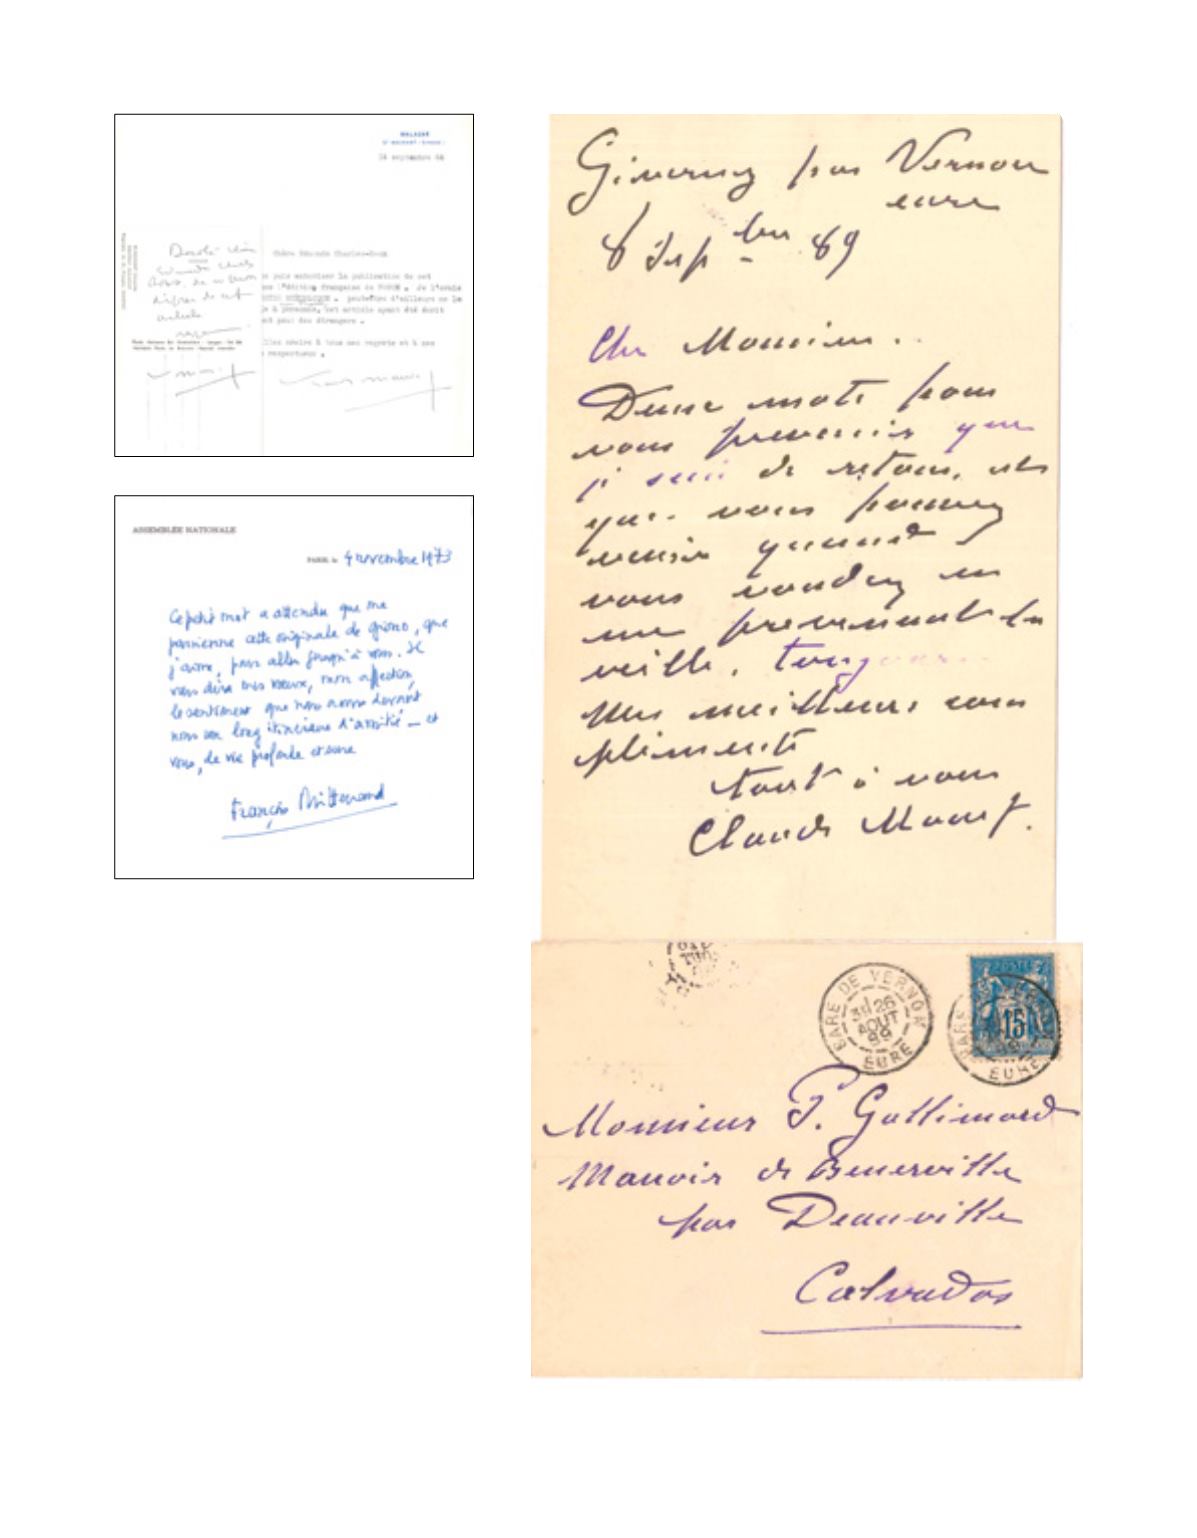 MALAGAR
septembre
Chère Edmonde Charles-Roux
puis autoriser la publication de cet
l'édition française de VOGUE. Je l'avais
peut-être d'ailleurs ne le
à personne, cet article ayant été écrit
pour des étrangers.
à tous mes regrets et à mes
respectueux.
ASSEMBLÉE NATIONALE
PARIS, le 4 novembre 1973
Ce petit mot a attendu que me
parvienne cette originale de Giono, que
j'aime, pour aller jusqu'à vous. Je
vous dire mes vœux, mon affection,
le sentiment que nous avons devant
nous un long itinéraire d'amitié — et
vous, de vie profonde et
François Mitterrand
Giverny par Vernon
eure
8 Sep bre 89
Cher Monsieur.
Deux mots pour
vous prevenir que
je suis de retour, et
que vous pouvez
venir quand
vous voudrez en
me prevenant la
veille.
Mes meilleurs com
pliments
tout à vous
Claude Monet.
GARE DE VERNON
3E 26
AOUT
99
EURE
15
EURE
Monsieur P. Gallimard
Manoir de Benerville
par Deauville
Calvados